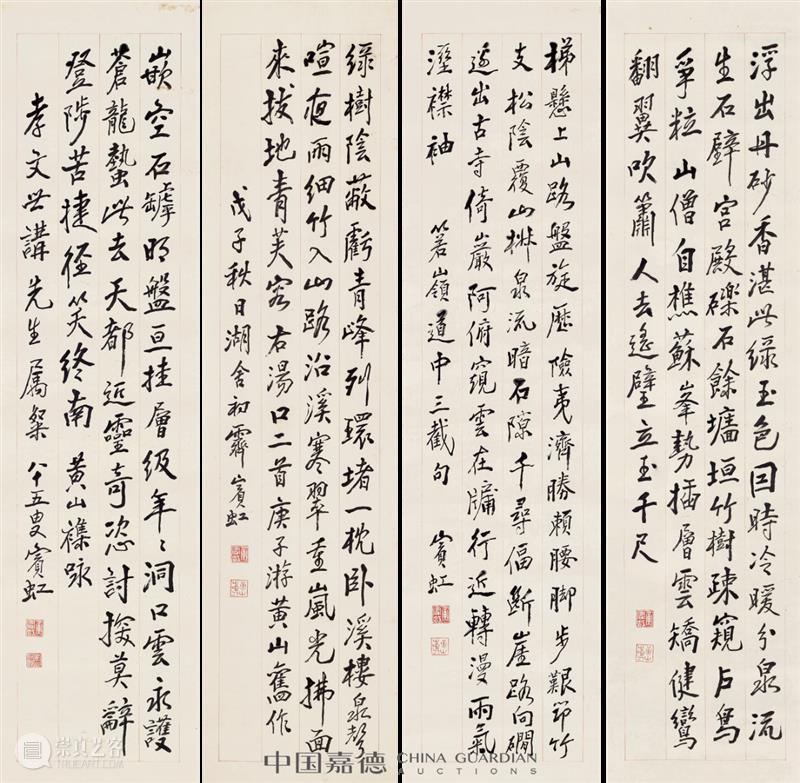 浮出丹砂香湛此綠玉色囙時冷暖分泉流
生石壁宮殿礫石餘墻垣竹樹疎窺户鳥
爭粒山僧自樵蘇峯勢插層雲矯健鸞
翻翼吹簫人去遙壁立玉千尺
梯懸上山路盤旋歷險夷濟勝賴腰脚步艱笻竹
支松陰覆山椒泉流暗石隙千尋偪斷崖路向磵
邊出古寺倚巖阿俯窺雲在牖行近轉漫雨氣
溼襟袖 箬嶺道中三截句 賓虹
綠樹陰蔽虧青峰列環堵一枕卧溪樓泉聲
喧夜雨細竹入山路沿溪寒翠重嵐光拂面
來拔地青芙容右湯口二首庚子游黃山舊作
戊子秋日湖舍初霽賓虹
嵌空石罅明盤亘挂層級年〻洞口雲永護
蒼龍蟄此去天都近靈奇恣討探莫辭
登陟苦捷徑笑終南 黃山襍咏
孝文世講先生屬粲 八十五叟賓虹
中国嘉德 CHINA GUARDIAN
AUCTIONS
崇真艺客